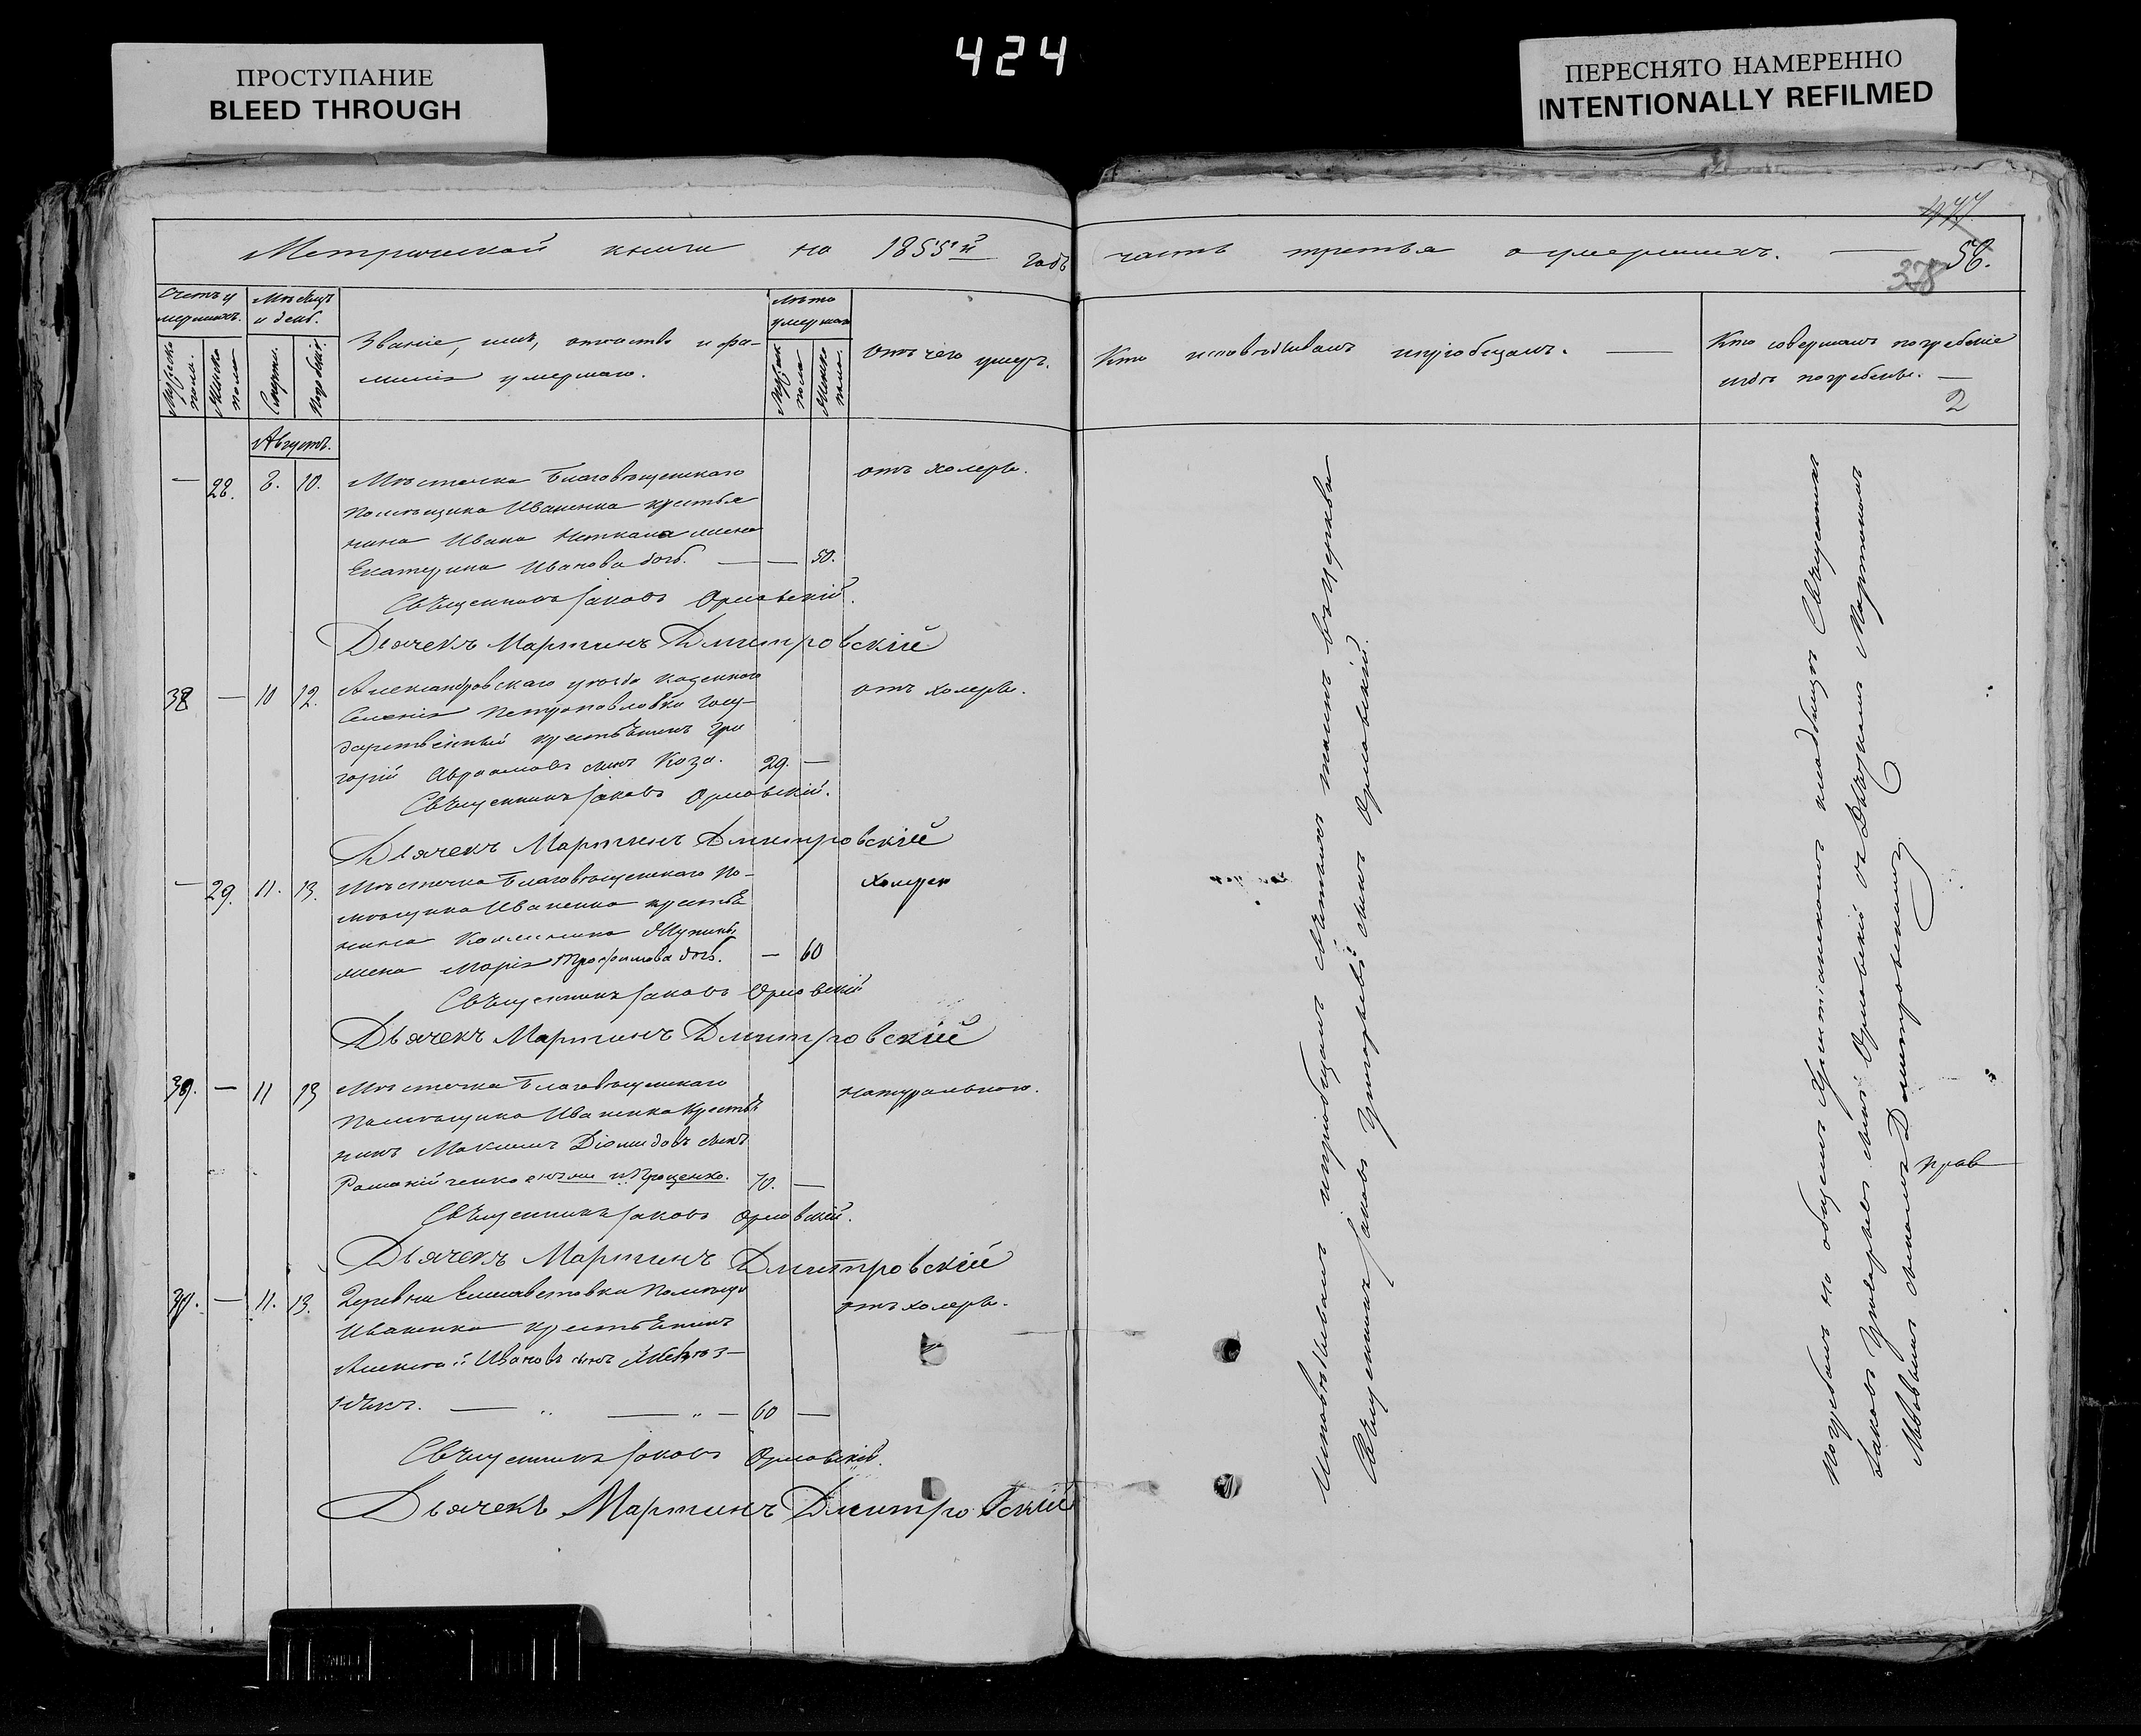 424
ПРОСТУПАНИЕ
BLEED THROUGH
ПЕРЕСНЯТО НАМЕРЕННО
INTENTIONALLY REFILMED
477
378
56.
Метрической книги на 1855й годъ часть третья о умершихъ.
Счетъ у
мершихъ.
Мѣсяцъ
и день.
Званіе, имя, отчество и фа-
милія умершаго.
Лѣто
умершаго
Отъ чего умеръ.
Кто исповѣдывалъ и пріобщалъ.
Кто совершалъ погребеніе
и гдѣ погребены.
2
Мужска
пола.
Женска
пола
Смерти.
Погребенія.
Мужск
пола
Женска
пола.
Августъ.
— 28. 8. 10. Мѣстечка Благовѣщенскаго отъ холеры.
Помѣщика Иваненка крестья
нина Ивана жена
Екатерина Иванова дочь. — — 50.
Священникъ Іаковъ Орловскій.
Дьячекъ Мартинъ Дмитровскій
38 — 10 12. Александровскаго уѣзда казеннаго отъ холеры.
Селенія Петропавловки Госу-
дарственный крестьянинъ Гри
горій Авраамовъ сынъ Коза. 29. —
Священникъ Іаковъ Орловскій.
Дьячекъ Мартинъ Дмитровскій
— 29. 11. 13. Мѣстечка Благовѣщенскаго По- Холеры
мѣщика Иваненка крестья
нина
жена Марія Трофимова дочь. — 60
Священникъ Іаковъ Орловскій
Дьячекъ Мартинъ Дмитровскій
39. — 11 13 Мѣстечка Благовѣщенскаго Натуральною.
Помѣщика Иваненка крестья
нинъ Максимъ Діомидовъ сынъ
Проценко. 70. —
Священникъ Іаковъ Орловскій.
Дьячекъ Мартинъ Дмитровскій
— 11. 13. Деревни Елисаветовки Помѣщи отъ холеры.
Иваненка крестьянинъ
Алексѣй Ивановъ сынъ
— " — " — 60 —
Священникъ Іаковъ Орловскій.
Дьячекъ Мартинъ Дмитровскій
Исповѣдывалъ и пріобщалъ Святыхъ таинъ въ церкви
Священникъ Іаковъ Григорьевъ сынъ Орловскій.
Погребалъ на общемъ Христіанскомъ кладбищѣ Священникъ
Іаковъ Григорьевъ сынъ Орловскій съ Дьячкомъ Мартиномъ
сыномъ Дмитровскимъ